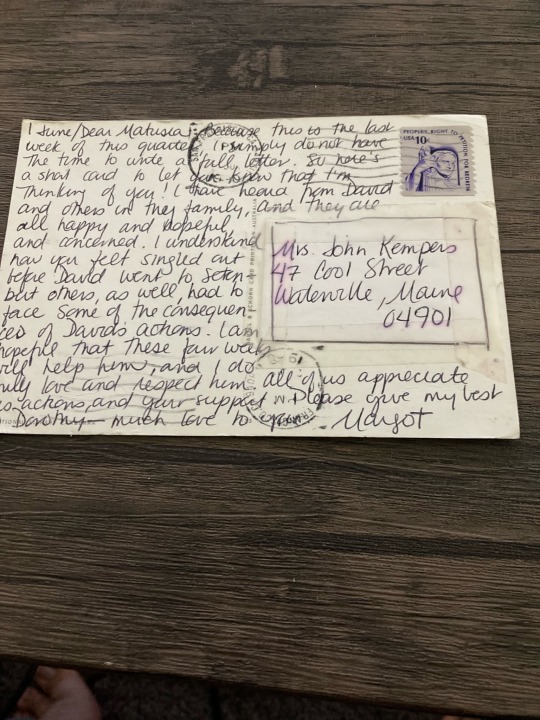 1 June/Dear Matusia; Because this is the last
week of this quarter I simply do not have
the time to write a full letter. So here's
a short card to let you know that I'm
Thinking of you! I have heard from David
and others in they family, and they are
all happy and hopeful,
and concerned. I understand
how you felt singled out
before David went to
but others, as well, had to
face some of the consequen
ces of David's actions. I am
hopeful that these four weeks
will help him, and I do
love and respect him all of us appreciate
actions, and your support. Please give my best
Dorothy— much love to you. Margot
PEOPLE'S RIGHT TO PETITION FOR REDRESS
USA 10c
Mrs. John Kempers
47 Cool Street
Waterville, Maine
04901
PM